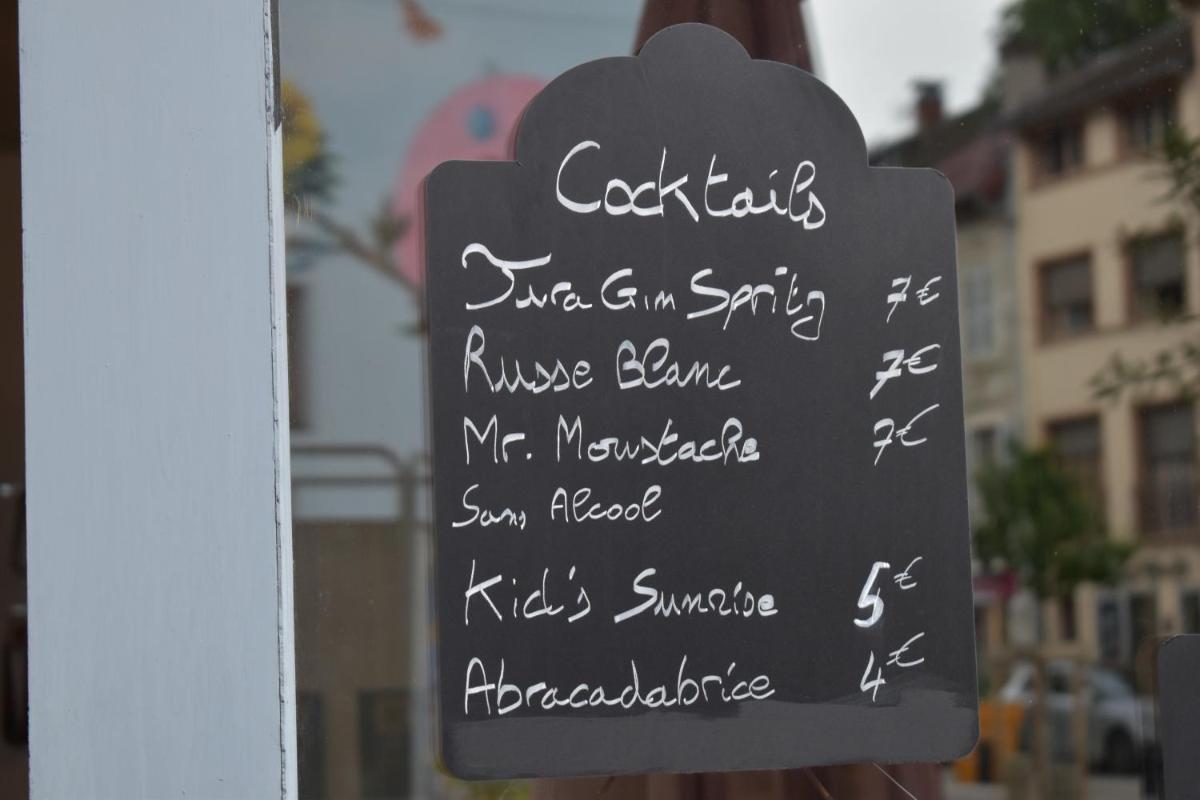 Cocktails
Jura Gin Spritz 7€
Russe Blanc 7€
Mr. Moustache 7€
Sans Alcool
Kid's Sunrise 5€
Abracadabrice 4€